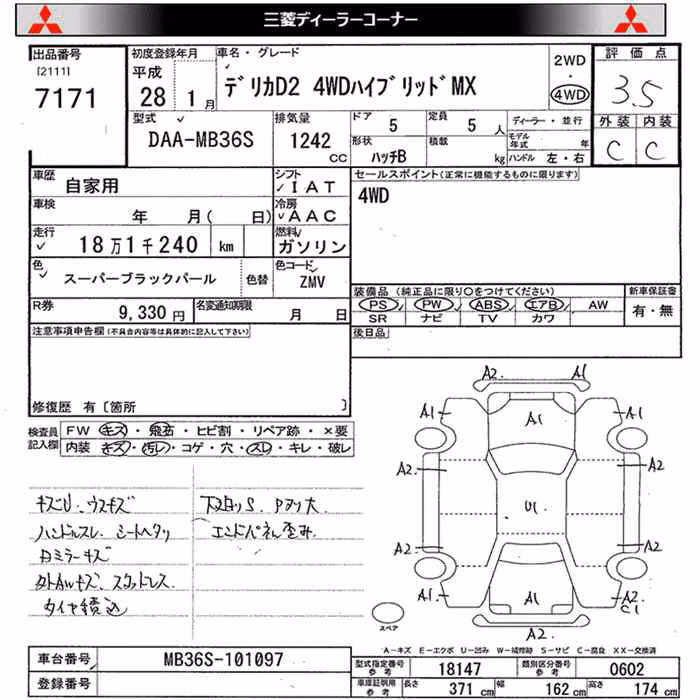 三菱ディーラーコーナー
出品番号 初度登録年月 車名・グレード 2WD 評価点
[2111] 平成
7171 28 1月 デリカD2 4WDハイブリッドMX ・ 4WD 3.5
型式 排気量 ドア 5 定員 5人 ディーラー・並行 外装 内装
DAA-MB36S 1242 cc 形状 ハッチB 積載 kg モデル年式 年 C C
ハンドル 左・右
車歴 自家用 シフト IAT セールスポイント(正常に機能するものに限ります)
車検 年 月( 日) 冷房 AAC 4WD
走行 18万1千240 km 燃料 ガソリン
色 スーパーブラックパール 色替 色コード ZMV
装備品 (純正品に限り○をつけてください) 新車保証書
PS PW ABS エアB AW 有・無
SR ナビ TV カワ
R券 9,330円 名変通知期限 月 日
注意事項申告欄(不具合内容等は具体的に記入して下さい) 後日品
修復歴 有〔箇所 〕
検査員記入欄 FW キズ・飛石・ヒビ割・リペア跡・×要
内装 キズ・汚レ・コゲ・穴・スレ・キレ・破レ
キズU、ウスキズ
ハンドルスレ シートヘタリ
Dミラーキズ
外AWキズ、スタッドレス
タイヤ積込
下廻りS、Pヌケ大
エンドパネル歪み
A2. A1
A1. A1 A1
A2 A2
U1
A2 A2
A1. A1 A2
C1
A2
スペア
A-キズ E-エクボ U-凹み W-補修跡 S-サビ C-腐食 XX-交換済
車台番号 MB36S-101097
登録番号
型式指定番号 参考 18147 類別区分番号 参考 0602
車庫証明用 参考 長さ 371cm 幅 162cm 高さ 174cm